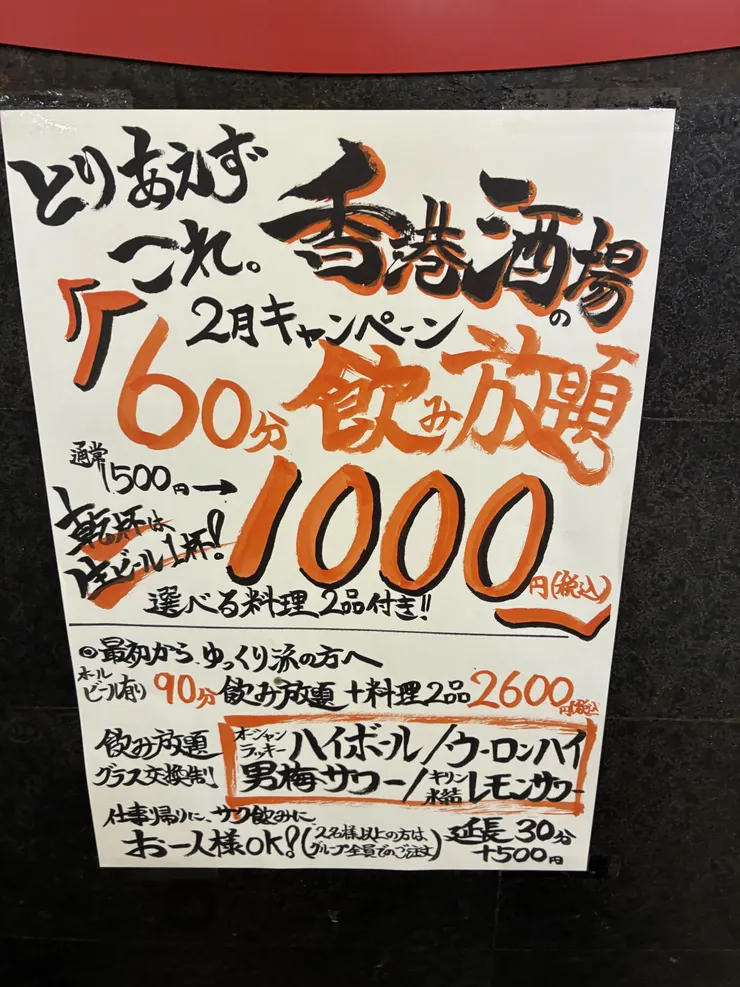 とりあえず
これ。
香港酒場の
2月キャンペーン
「60分飲み放題
通常
1500円→1000円(税込)」
乾杯は
生ビール1杯!!
選べる料理2品付き!!
◎最初から、ゆっくり派の方へ
ホール
ビール有り
90分飲み放題+料理2品2600円(税込)
飲み放題
グラス交換制
オーシャン
ラッキー
ハイボール/ウーロンハイ
男梅サワー/キリン氷結レモンサワー
仕事帰りに、サク飲みに
お一人様OK!(2名様以上の方は、グループ全員でのご注文)
延長30分
+500円